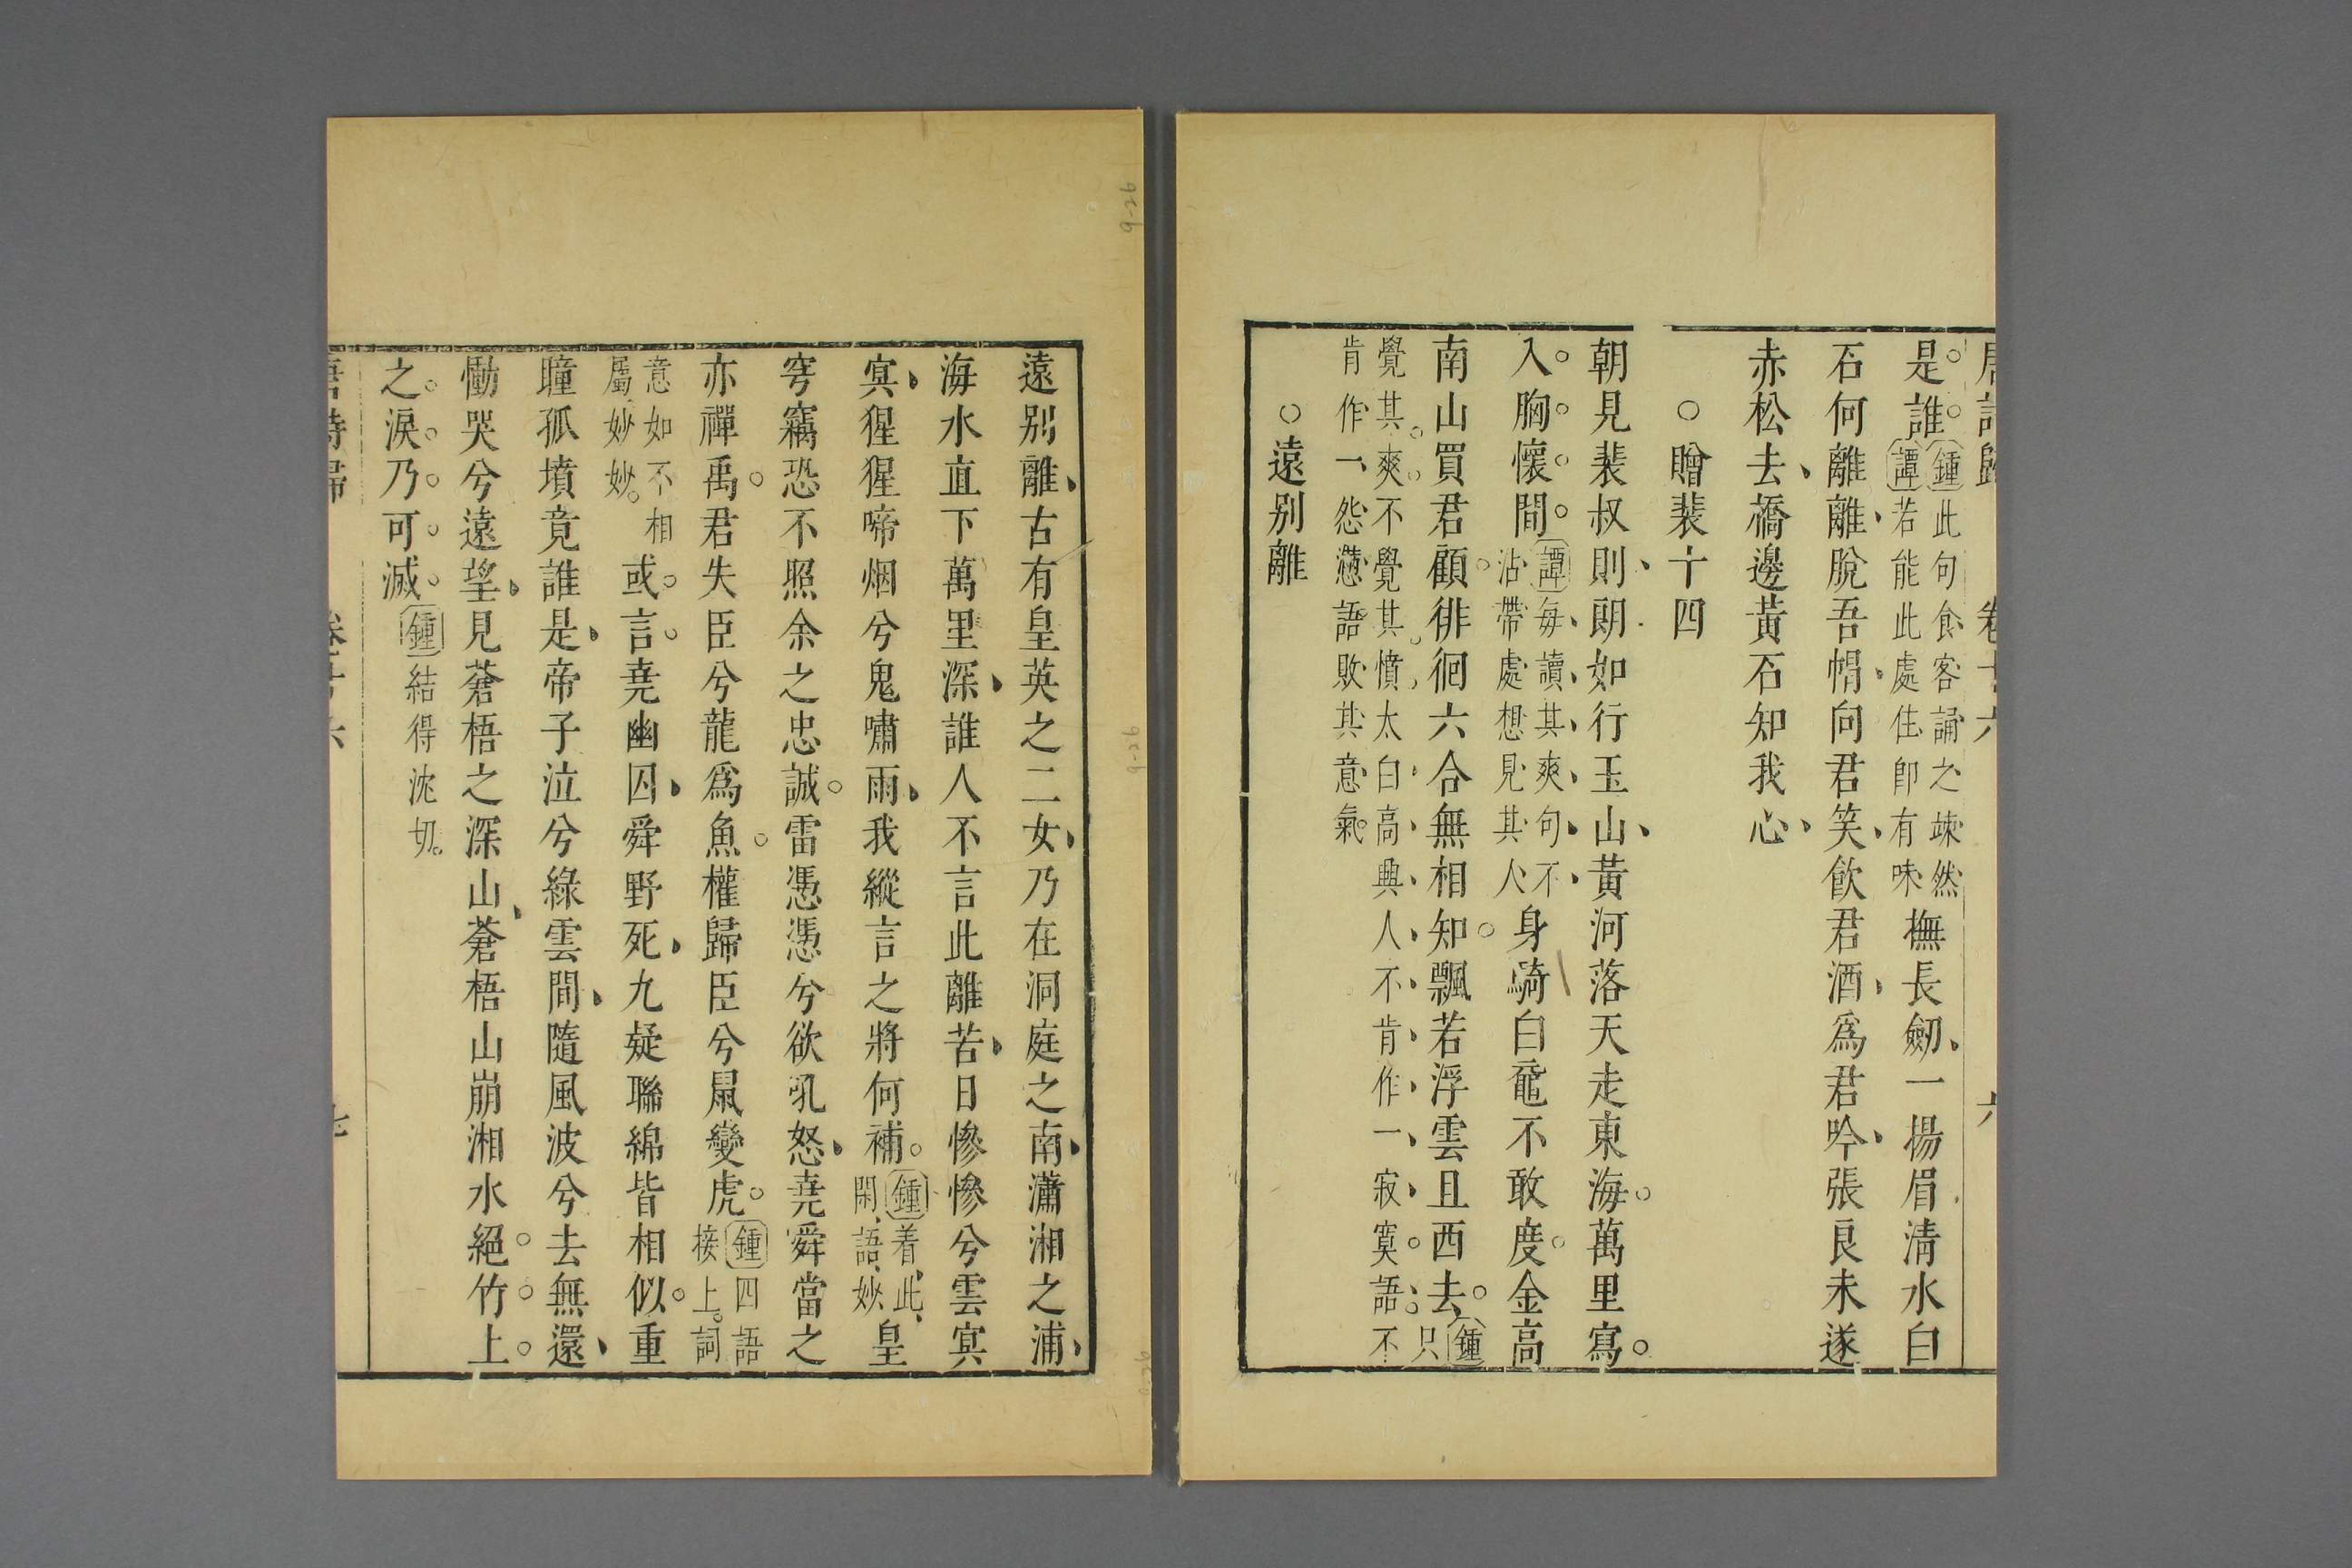 唐詩歸 卷十六 六
是誰鍾此句食客誦之竦然譚若能此處住卽有味撫長劒一揚眉清水白
石何離離脫吾帽向君笑飲君酒爲君吟張良未遂
赤松去橋邊黃石知我心
○贈裴十四
朝見裴叔則朗如行玉山黃河落天走東海萬里寫
入胸懷間譚每讀其爽句不沾帶處想見其人身騎白黿不敢度金高
南山買君顧徘徊六合無相知飄若浮雲且西去鍾只
覺其爽不覺其憤太白高興人不肯作一寂寞語不
肯作一怨懟語敗其意氣
○遠別離
遠別離古有皇英之二女乃在洞庭之南瀟湘之浦
海水直下萬里深誰人不言此離苦日慘慘兮雲冥
冥猩猩啼烟兮鬼嘯雨我縱言之將何補鍾着此閑語妙皇
穹竊恐不照余之忠誠雷憑憑兮欲吼怒堯舜當之
亦禪禹君失臣兮龍爲魚權歸臣兮鼠變虎鍾四語接上詞
意如不相屬妙妙或言堯幽囚舜野死九疑聯綿皆相似重
瞳孤墳竟誰是帝子泣兮綠雲間隨風波兮去無還
慟哭兮遠望見蒼梧之深山蒼梧山崩湘水絕竹上
之淚乃可滅鍾結得沈切
唐詩歸 卷十六 七